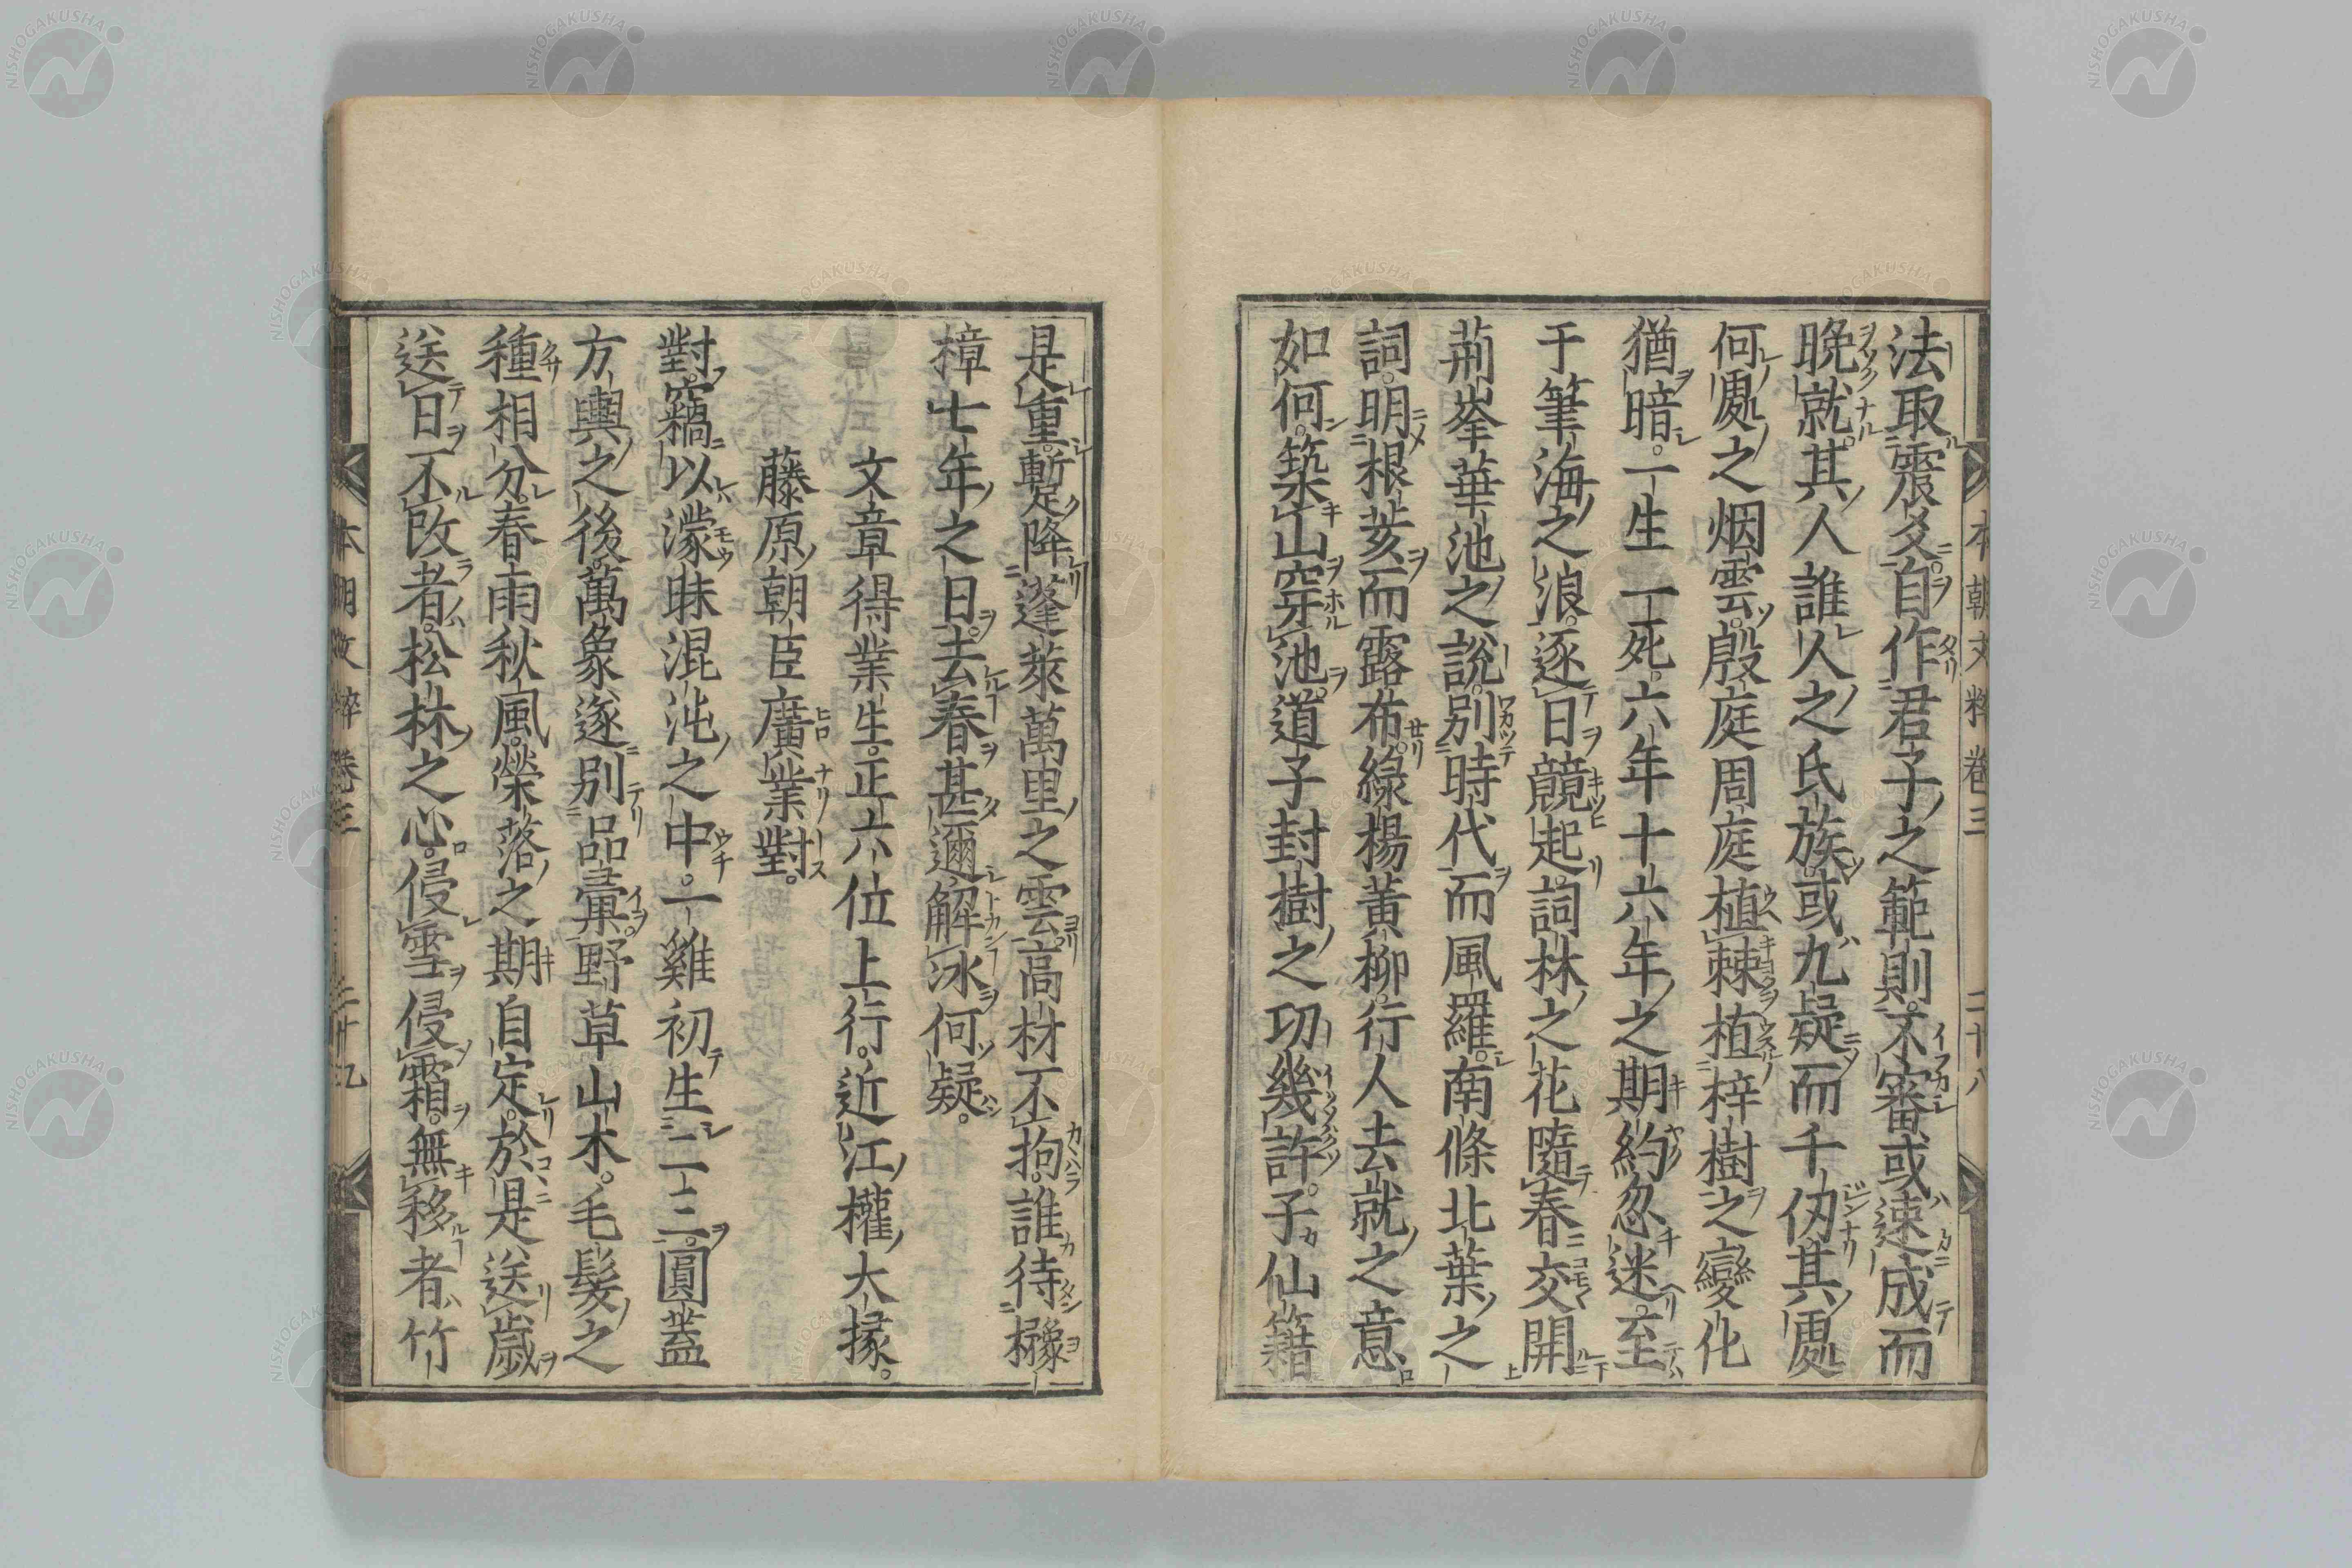 法取震爻自作君子之範則不審或速成而
晩就其人誰人之氏族或九疑而千仭其處
何處之烟雲殷庭周庭植棘植梓樹之變化
猶暗一生一死六年十六年之期約忽迷至
于筆海之浪逐日競起詞林之花隨春交開
荊岑華池之説別時代而風羅南條北葉之
詞明根荄而露布綠楊黃柳行人去就之意
如何築山穿池道子封樹之功幾許子仙籍
是重暫降蓬萊萬里之雲高材不拘誰待櫲
樟七年之日去春甚邇解冰何疑
文章得業生正六位上行近江權大掾
藤原朝臣廣業對
對竊以濛昧混沌之中一雞初生二三圓蓋
方輿之後萬象遂別品彙野草山木毛髮之
種相分春雨秋風榮落之期自定於是送歲
送日不改者松林之心侵雪侵霜無移者竹
本朝文粹卷三 二十八
本朝文粹卷三
NISHOGAKUSHA